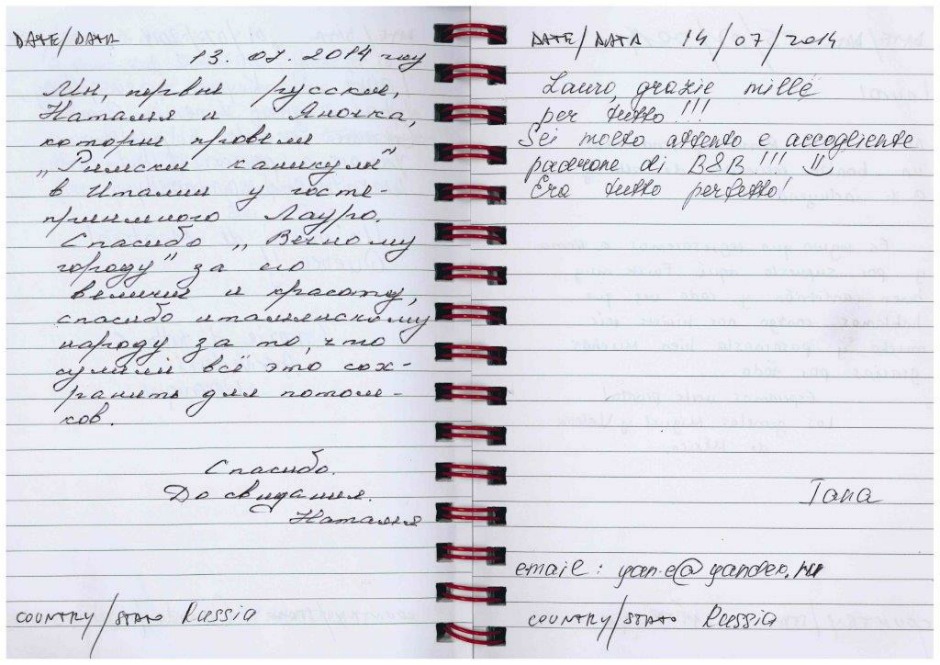 DATE/DATA
13.07.2014 году
Мы, первые русские,
Наталья и Яночка,
которые провели
„Римские каникулы"
в Италии у госте-
приимного Лауро.
Спасибо „Вечному
городу" за его
величие и красоту,
спасибо итальянскому
народу за то, что
сумели всё это сох-
ранить для потом-
ков.
Спасибо.
До свидания.
Наталья
COUNTRY/STATO Russia
DATE/DATA 14/07/2014
Lauro, grazie mille
per tutto!!!
Sei molto attento e accogliente
padrone di B&B!!!
Era tutto perfetto!
Iana
email: yan.e@yandex.ru
COUNTRY/STATO Russia